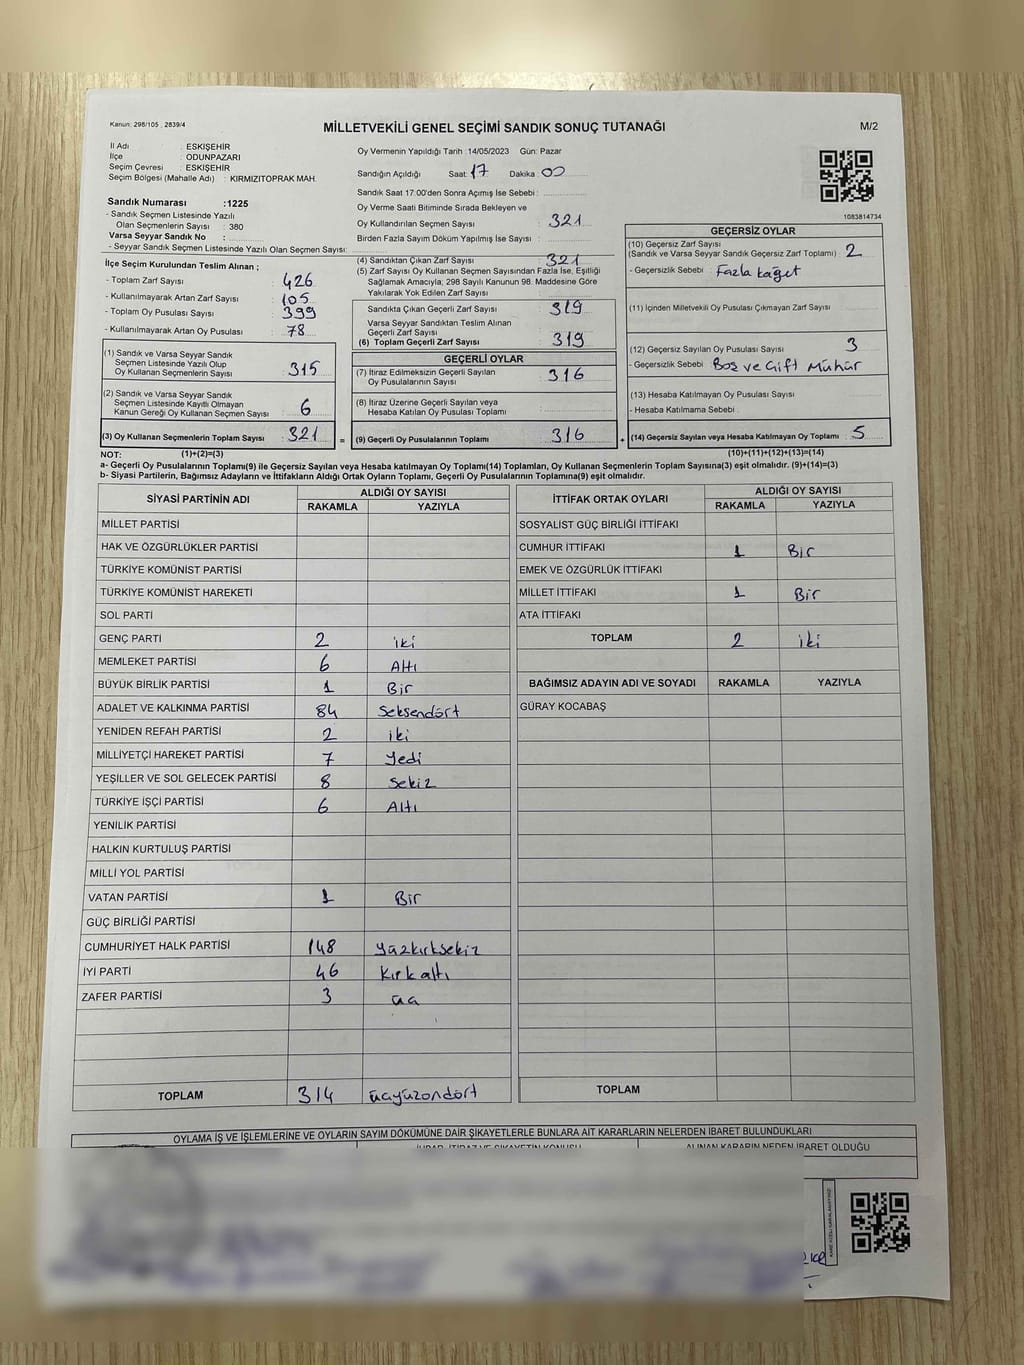 Kanun: 298/105 , 2839/4
MİLLETVEKİLİ GENEL SEÇİMİ SANDIK SONUÇ TUTANAĞI
M/2
İl Adı : ESKİŞEHİR
İlçe : ODUNPAZARI
Seçim Çevresi : ESKİŞEHİR
Seçim Bölgesi (Mahalle Adı) : KIRMIZITOPRAK MAH.
Sandık Numarası :1225
- Sandık Seçmen Listesinde Yazılı
Olan Seçmenlerin Sayısı : 380
Varsa Seyyar Sandık No :
- Seyyar Sandık Seçmen Listesinde Yazılı Olan Seçmen Sayısı:
Oy Vermenin Yapıldığı Tarih :14/05/2023 Gün: Pazar
Sandığın Açıldığı Saat :17 Dakika :00
Sandık Saat 17:00'den Sonra Açımış İse Sebebi :
Oy Verme Saati Bitiminde Sırada Bekleyen ve
Oy Kullandırılan Seçmen Sayısı : 321
Birden Fazla Sayım Döküm Yapılmış İse Sayısı :
1083814734
İlçe Seçim Kurulundan Teslim Alınan ;
- Toplam Zarf Sayısı : 426
- Kullanılmayarak Artan Zarf Sayısı : 105
- Toplam Oy Pusulası : 399
- Kullanılmayarak Artan Oy Pusulası : 78
(1) Sandık ve Varsa Seyyar Sandık
Seçmen Listesinde Yazılı Olup
Oy Kullanan Seçmenlerin Sayısı : 315
(2) Sandık ve Varsa Seyyar Sandık
Seçmen Listesinde Kayıtlı Olmayan
Kanun Gereği Oy Kullanan Seçmen Sayısı : 6
(3) Oy Kullanan Seçmenlerin Toplam Sayısı : 321 =
(4) Sandıktan Çıkan Zarf Sayısı : 321
(5) Zarf Sayısı Oy Kullanan Seçmen Sayısından Fazla İse, Eşitliği
Sağlamak Amacıyla; 298 Sayılı Kanunun 98. Maddesine Göre
Yakılarak Yok Edilen Zarf Sayısı :
Sandıkta Çıkan Geçerli Zarf Sayısı : 319
Varsa Seyyar Sandıktan Teslim Alınan
Geçerli Zarf Sayısı :
(6) Toplam Geçerli Zarf Sayısı : 319
GEÇERLİ OYLAR
(7) İtiraz Edilmeksizin Geçerli Sayılan
Oy Pusulalarının Sayısı : 316
(8) İtiraz Üzerine Geçerli Sayılan veya
Hesaba Katılan Oy Pusulası Toplamı :
(9) Geçerli Oy Pusulalarının Toplamı : 316 +
GEÇERSİZ OYLAR
(10) Geçersiz Zarf Sayısı
(Sandık ve Varsa Seyyar Sandık Geçersiz Zarf Toplamı) : 2
- Geçersizlik Sebebi : Fazla kağıt
(11) İçinden Milletvekili Oy Pusulası Çıkmayan Zarf Sayısı :
(12) Geçersiz Sayılan Oy Pusulası Sayısı : 3
- Geçersizlik Sebebi : Boş ve Çift Mühür
(13) Hesaba Katılmayan Oy Pusulası Sayısı :
- Hesaba Katılmama Sebebi :
(14) Geçersiz Sayılan veya Hesaba Katılmayan Oy Toplamı : 5
NOT: (1)+(2)=(3) (10)+(11)+(12)+(13)=(14)
a- Geçerli Oy Pusulalarının Toplamı(9) ile Geçersiz Sayılan veya Hesaba katılmayan Oy Toplamı(14) Toplamları, Oy Kullanan Seçmenlerin Toplam Sayısına(3) eşit olmalıdır. (9)+(14)=(3)
b- Siyasi Partilerin, Bağımsız Adayların ve İttifakların Aldığı Ortak Oyların Toplamı, Geçerli Oy Pusulalarının Toplamına(9) eşit olmalıdır.
SİYASİ PARTİNİN ADI ALDIĞI OY SAYISI
RAKAMLA YAZIYLA
MİLLET PARTİSİ
HAK VE ÖZGÜRLÜKLER PARTİSİ
TÜRKİYE KOMÜNİST PARTİSİ
TÜRKİYE KOMÜNİST HAREKETİ
SOL PARTİ
GENÇ PARTİ 2 iki
MEMLEKET PARTİSİ 6 Altı
BÜYÜK BİRLİK PARTİSİ 1 Bir
ADALET VE KALKINMA PARTİSİ 84 Seksendört
YENİDEN REFAH PARTİSİ 2 iki
MİLLİYETÇİ HAREKET PARTİSİ 7 Yedi
YEŞİLLER VE SOL GELECEK PARTİSİ 8 Sekiz
TÜRKİYE İŞÇİ PARTİSİ 6 Altı
YENİLİK PARTİSİ
HALKIN KURTULUŞ PARTİSİ
MİLLİ YOL PARTİSİ
VATAN PARTİSİ 1 Bir
GÜÇ BİRLİĞİ PARTİSİ
CUMHURİYET HALK PARTİSİ 148 Yüzkırksekiz
İYİ PARTİ 46 Kırkaltı
ZAFER PARTİSİ 3 üç
TOPLAM 314 üçyüzondört
İTTİFAK ORTAK OYLARI ALDIĞI OY SAYISI
RAKAMLA YAZIYLA
SOSYALİST GÜÇ BİRLİĞİ İTTİFAKI
CUMHUR İTTİFAKI 1 Bir
EMEK VE ÖZGÜRLÜK İTTİFAKI
MİLLET İTTİFAKI 1 Bir
ATA İTTİFAKI
TOPLAM 2 iki
BAĞIMSIZ ADAYIN ADI VE SOYADI RAKAMLA YAZIYLA
GÜRAY KOCABAŞ
TOPLAM
OYLAMA İŞ VE İŞLEMLERİNE VE OYLARIN SAYIM DÖKÜMÜNE DAİR ŞİKAYETLERLE BUNLARA AİT KARARLARIN NELERDEN İBARET BULUNDUKLARI
ALINAN KARARIN NEDEN İBARET OLDUĞU